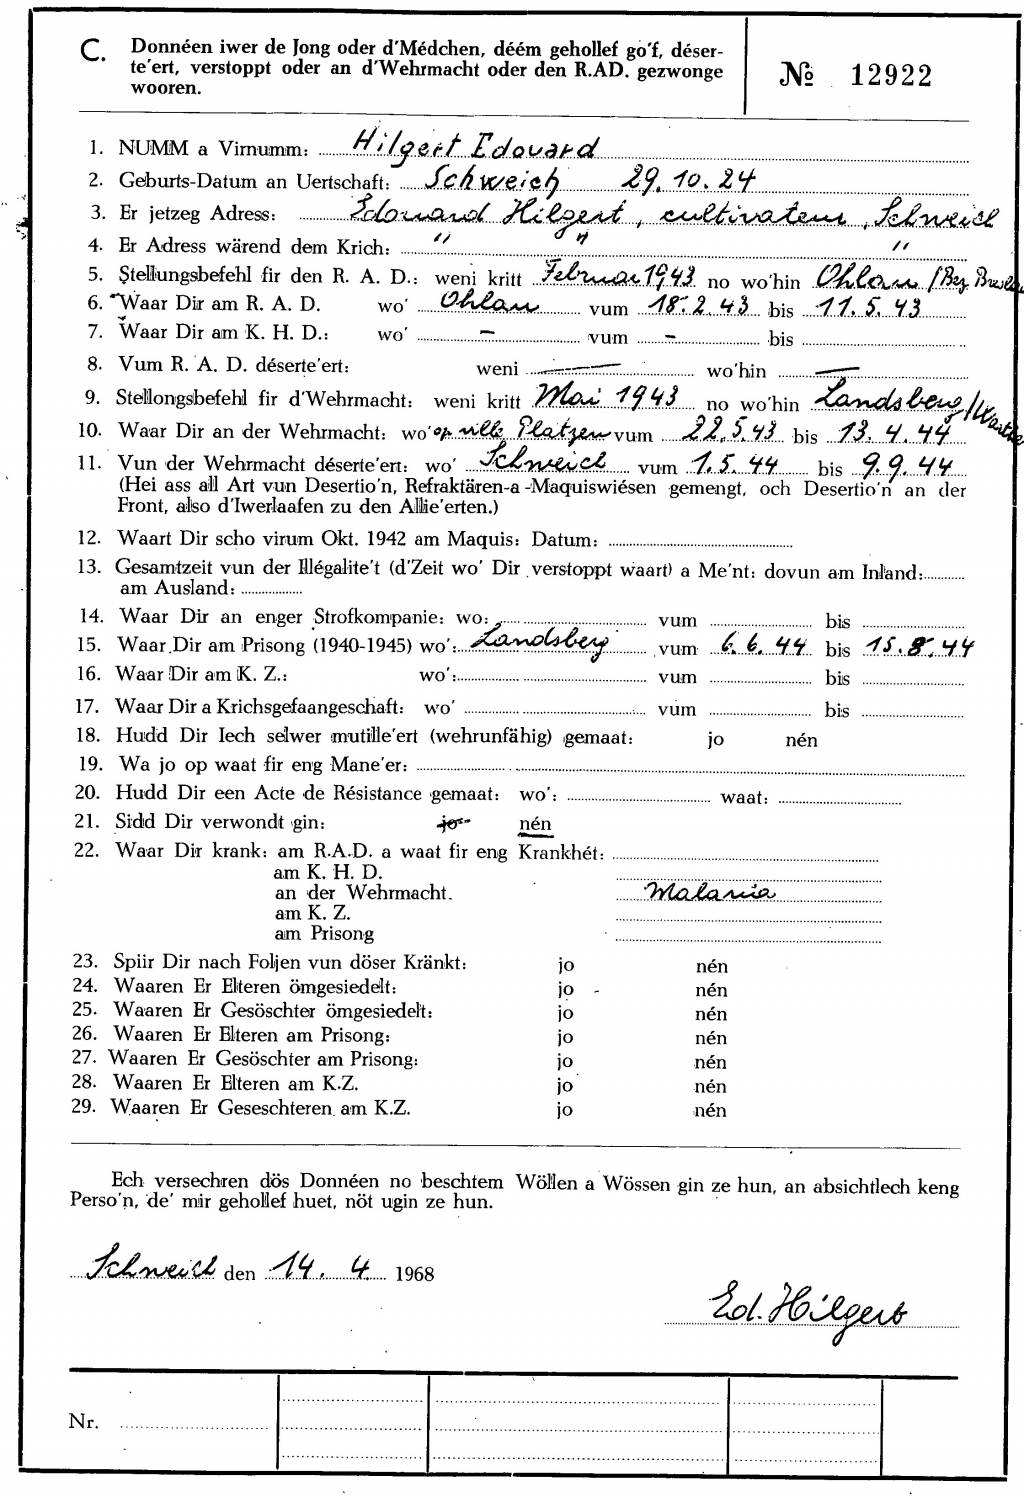 C. Donnéen iwer de Jong oder d'Médchen, déém gehollef go'f, déser-
te'ert, verstoppt oder an d'Wehrmacht oder den R.AD. gezwonge
wooren.
№ 12922
1. NUMM a Virnumm: Hilgert Edouard
2. Geburts-Datum an Uertschaft: Schweich 29.10.24
3. Er jetzeg Adress: Edouard Hilgert, cultivateur, Schweich
4. Er Adress wärend dem Krich: " " "
5. Stellungsbefehl fir den R. A. D.: weni kritt Februar 1943 no wo'hin Ohlau / Bez. Breslau
6. Waar Dir am R. A. D. wo' Ohlau vum 18.2.43 bis 11.5.43
7. Waar Dir am K. H. D.: wo' – vum – bis
8. Vum R. A. D. déserte'ert: weni — wo'hin —
9. Stellongsbefehl fir d'Wehrmacht: weni kritt Mai 1943 no wo'hin Landsberg/Warthe
10. Waar Dir an der Wehrmacht: wo' op ville Platzen vum 22.5.43 bis 13.4.44
11. Vun der Wehrmacht déserte'ert: wo' Schweich vum 1.5.44 bis 9.9.44
(Hei ass all Art vun Desertio'n, Refraktären-a-Maquiswiésen gemengt, och Desertio'n an der
Front, also d'Iwerlaafen zu den Allie'erten.)
12. Waart Dir scho virum Okt. 1942 am Maquis: Datum:
13. Gesamtzeit vun der Illégalite't (d'Zeit wo' Dir verstoppt waart) a Me'nt: dovun am Inland:
am Ausland:
14. Waar Dir an enger Strofkompanie: wo: vum bis
15. Waar Dir am Prisong (1940-1945) wo': Landsberg vum 6.6.44 bis 15.8.44
16. Waar Dir am K. Z.: wo': vum bis
17. Waar Dir a Krichsgefaangeschaft: wo' vum bis
18. Hudd Dir Iech selwer mutille'ert (wehrunfähig) gemaat: jo nén
19. Wa jo op waat fir eng Mane'er:
20. Hudd Dir een Acte de Résistance gemaat: wo': waat:
21. Sidd Dir verwondt gin: jo nén
22. Waar Dir krank: am R.A.D. a waat fir eng Krankhét:
am K. H. D.
an der Wehrmacht. Malaria
am K. Z.
am Prisong
23. Spiir Dir nach Foljen vun döser Kränkt: jo nén
24. Waaren Er Elteren ömgesiedelt: jo nén
25. Waaren Er Gesöschter ömgesiedelt: jo nén
26. Waaren Er Elteren am Prisong: jo nén
27. Waaren Er Gesöschter am Prisong: jo nén
28. Waaren Er Elteren am K.Z. jo nén
29. Waaren Er Geseschteren am K.Z. jo nén
Ech versechren dös Donnéen no beschtem Wöllen a Wössen gin ze hun, an absichtlech keng
Perso'n, de' mir gehollef huet, nöt ugin ze hun.
Schweich den 14. 4. 1968
Ed. Hilgert
Nr.